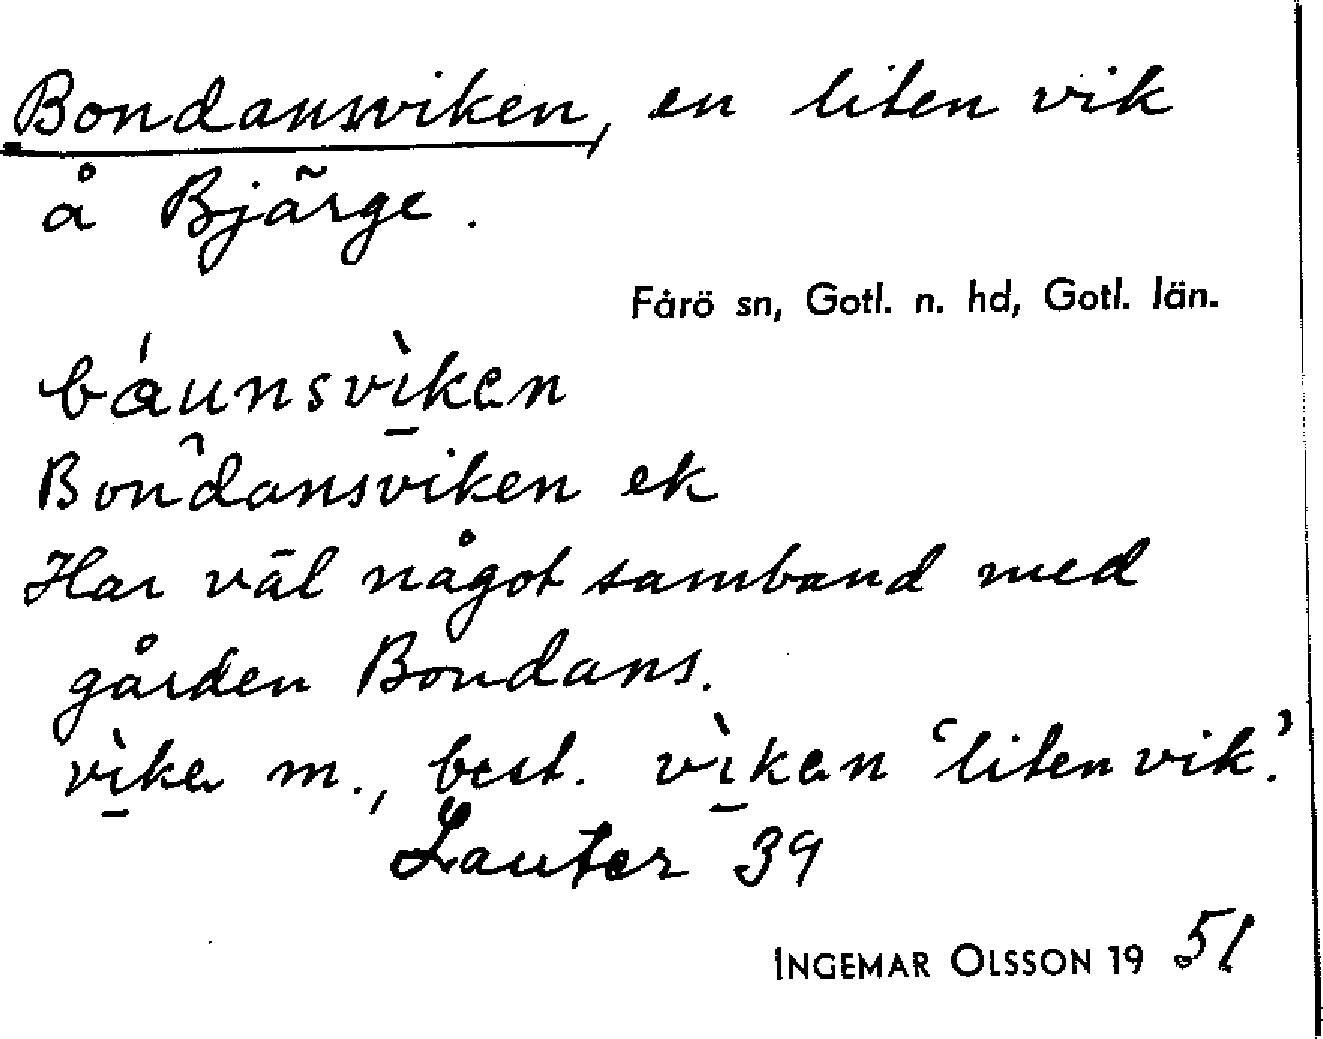 Bondansviken, en liten vik
å Bjärge.
Fårö sn, Gotl. n. hd, Gotl. län.
báunsvì̱ken
Bondansviken ek
Har väl något samband med
gården Bondans.
vì̱ka m., best. vì̱ken ‘liten vik’.
Lauter 39
INGEMAR OLSSON 19 51